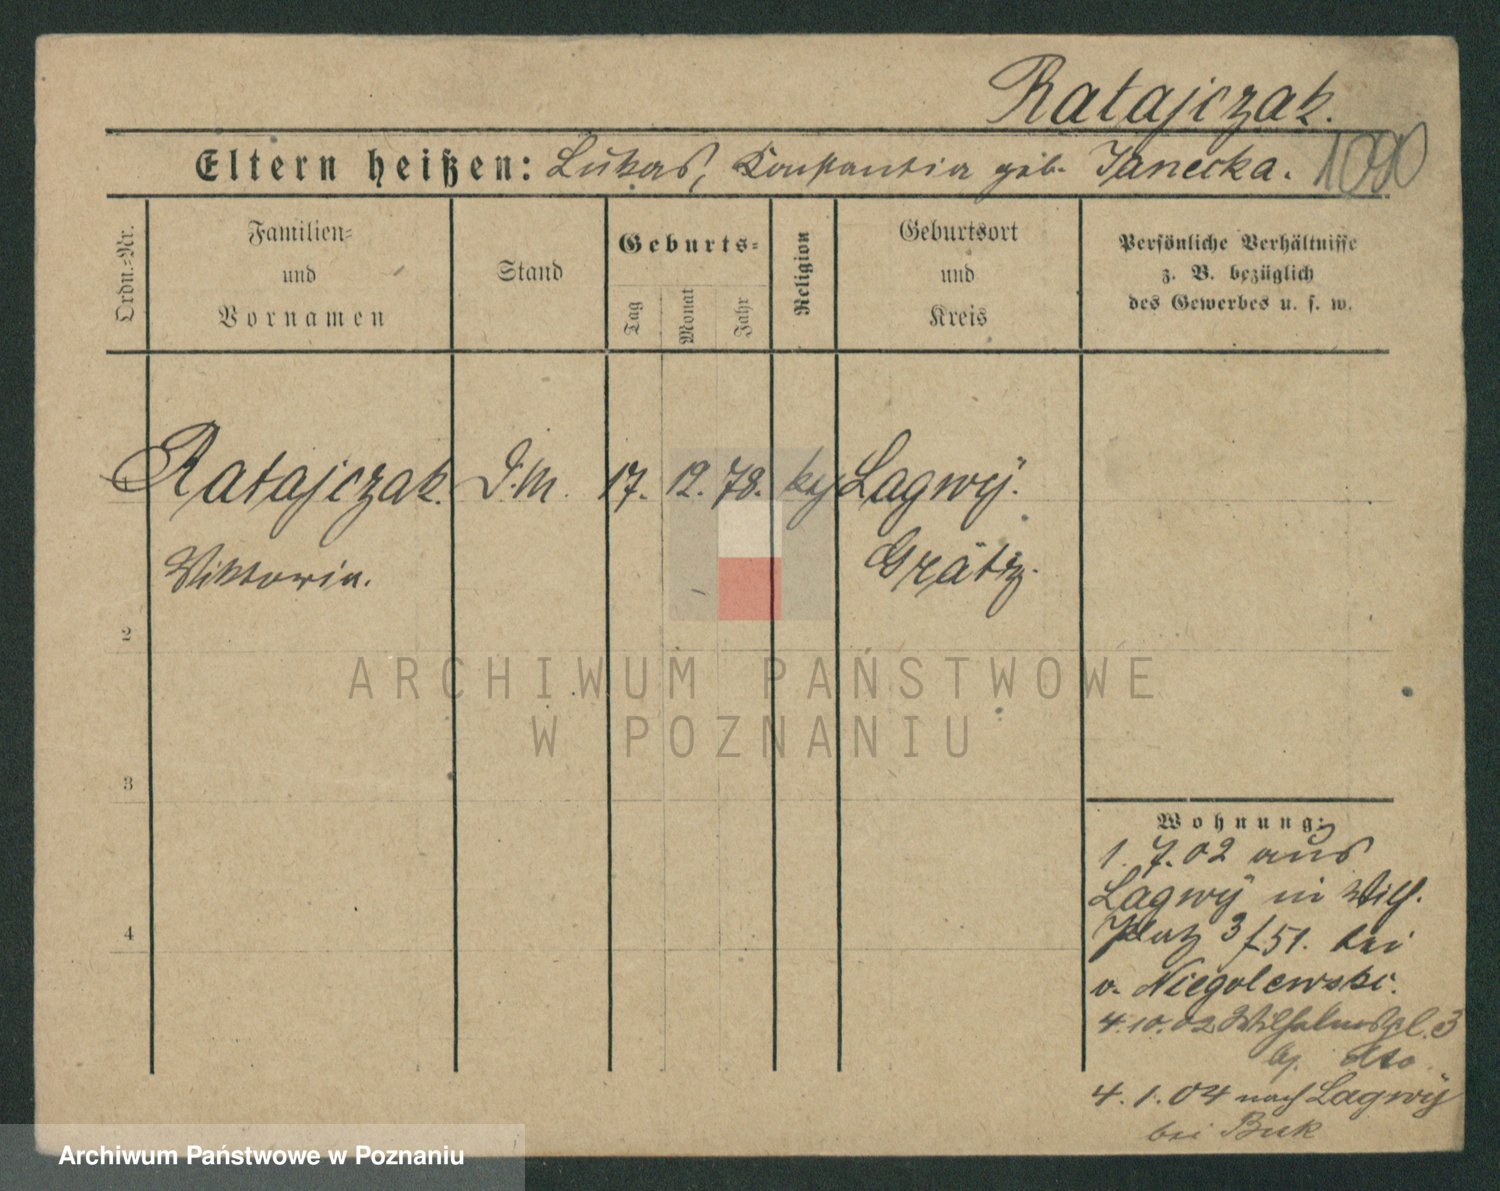 Ratajczak.
Eltern heißen: Lukas, Konstantia geb. Janecka. 1090
Ordn.-Nr.
Familien-
und
Vornamen
Stand
Geburts-
Tag
Monat
Jahr
Religion
Geburtsort
und
Kreis
Persönliche Verhältnisse
z. B. bezüglich
des Gewerbes u. s. w.
1 Ratajczak. D.M. 17. 12. 78. Lagwÿ.
Viktoria. Grätz.
2
ARCHIWUM PAŃSTWOWE
W POZNANIU
3
4
Wohnung:
1. 7. 02 aus
Lagwÿ in Wilh.
Platz 3 f 51. bei
v. Niegolewski.
4.10.02 Wilhelmspl. 3
dto
4. 1. 04 nach Lagwÿ
bei Buk
Archiwum Państwowe w Poznaniu